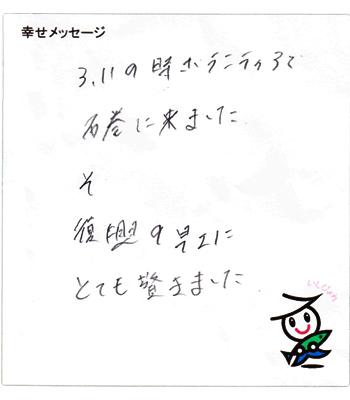 幸せメッセージ
3.11の時ボランティアで
石巻に来ました
そ
復興の早エに
とても驚きました